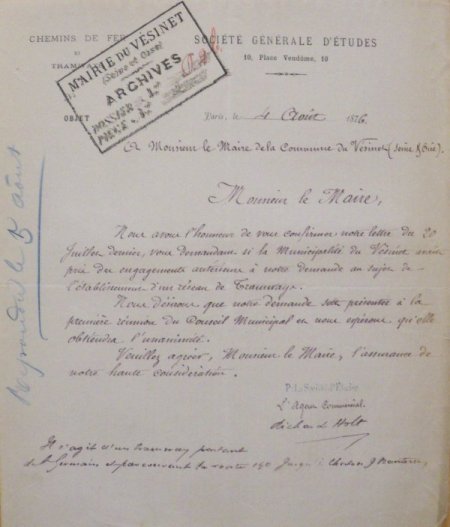 CHEMINS DE FER
ET
TRAMWAYS
SOCIÉTÉ GÉNÉRALE D'ÉTUDES
10, Place Vendôme, 10
MAIRIE DU VÉSINET
(Seine et Oise)
ARCHIVES
DOSSIER
PIÈCE
OBJET
Paris, le 4 Août 1876
A Monsieur le Maire de la Commune du Vésinet (Seine & Oise)
Monsieur le Maire,
Nous avons l'honneur de vous confirmer notre lettre du 20
Juillet dernier, vous demandant si la Municipalité du Vésinet avait
pris des engagements antérieurs à notre demande au sujet de
l'établissement d'un réseau de Tramways.
Nous désirons que notre demande soit présentée à la
première réunion du Conseil Municipal et nous espérons qu'elle
obtiendra l'unanimité.
Veuillez agréer, Monsieur le Maire, l'assurance de
notre haute considération.
L'Agent Commercial
Répondu le août
Il s'agit d'un tramway partant
de St Germain et parcourant la route 190 jusqu'à